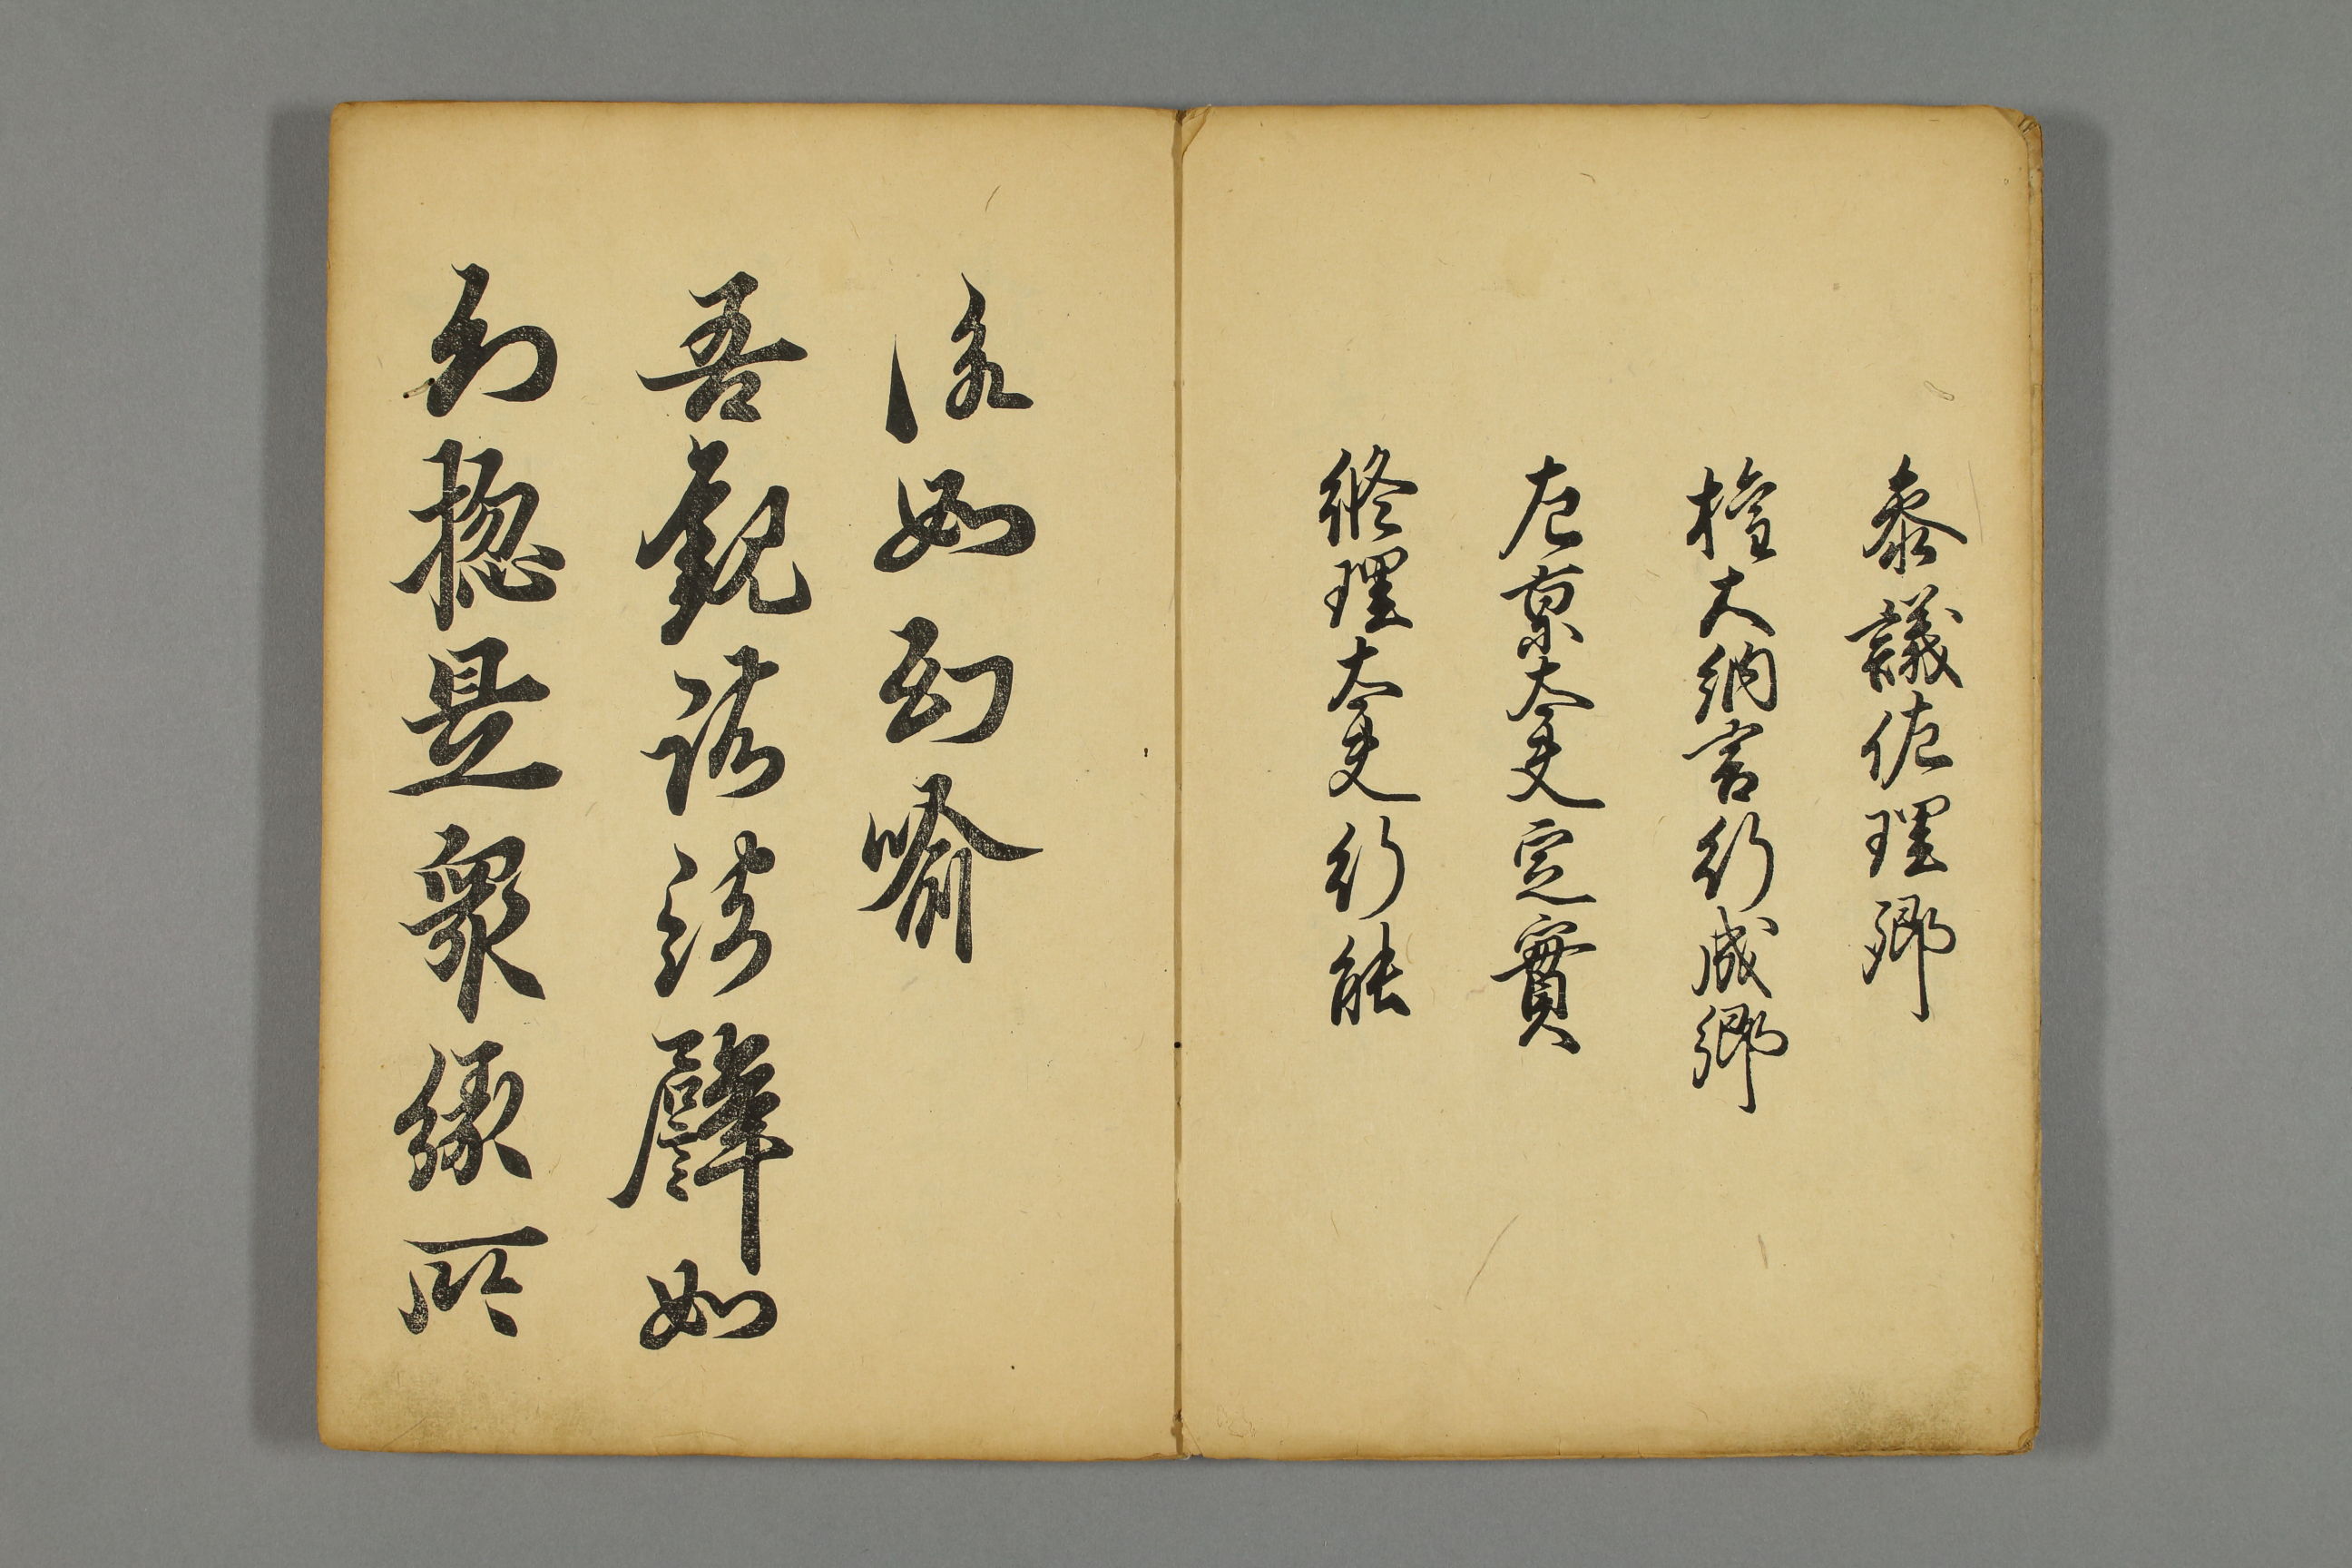 参議佐理卿
権大納言行成卿
左京大夫定實
修理大夫行能
詠如幻喩
吾觀諸法譬如
幻惣是眾縁所